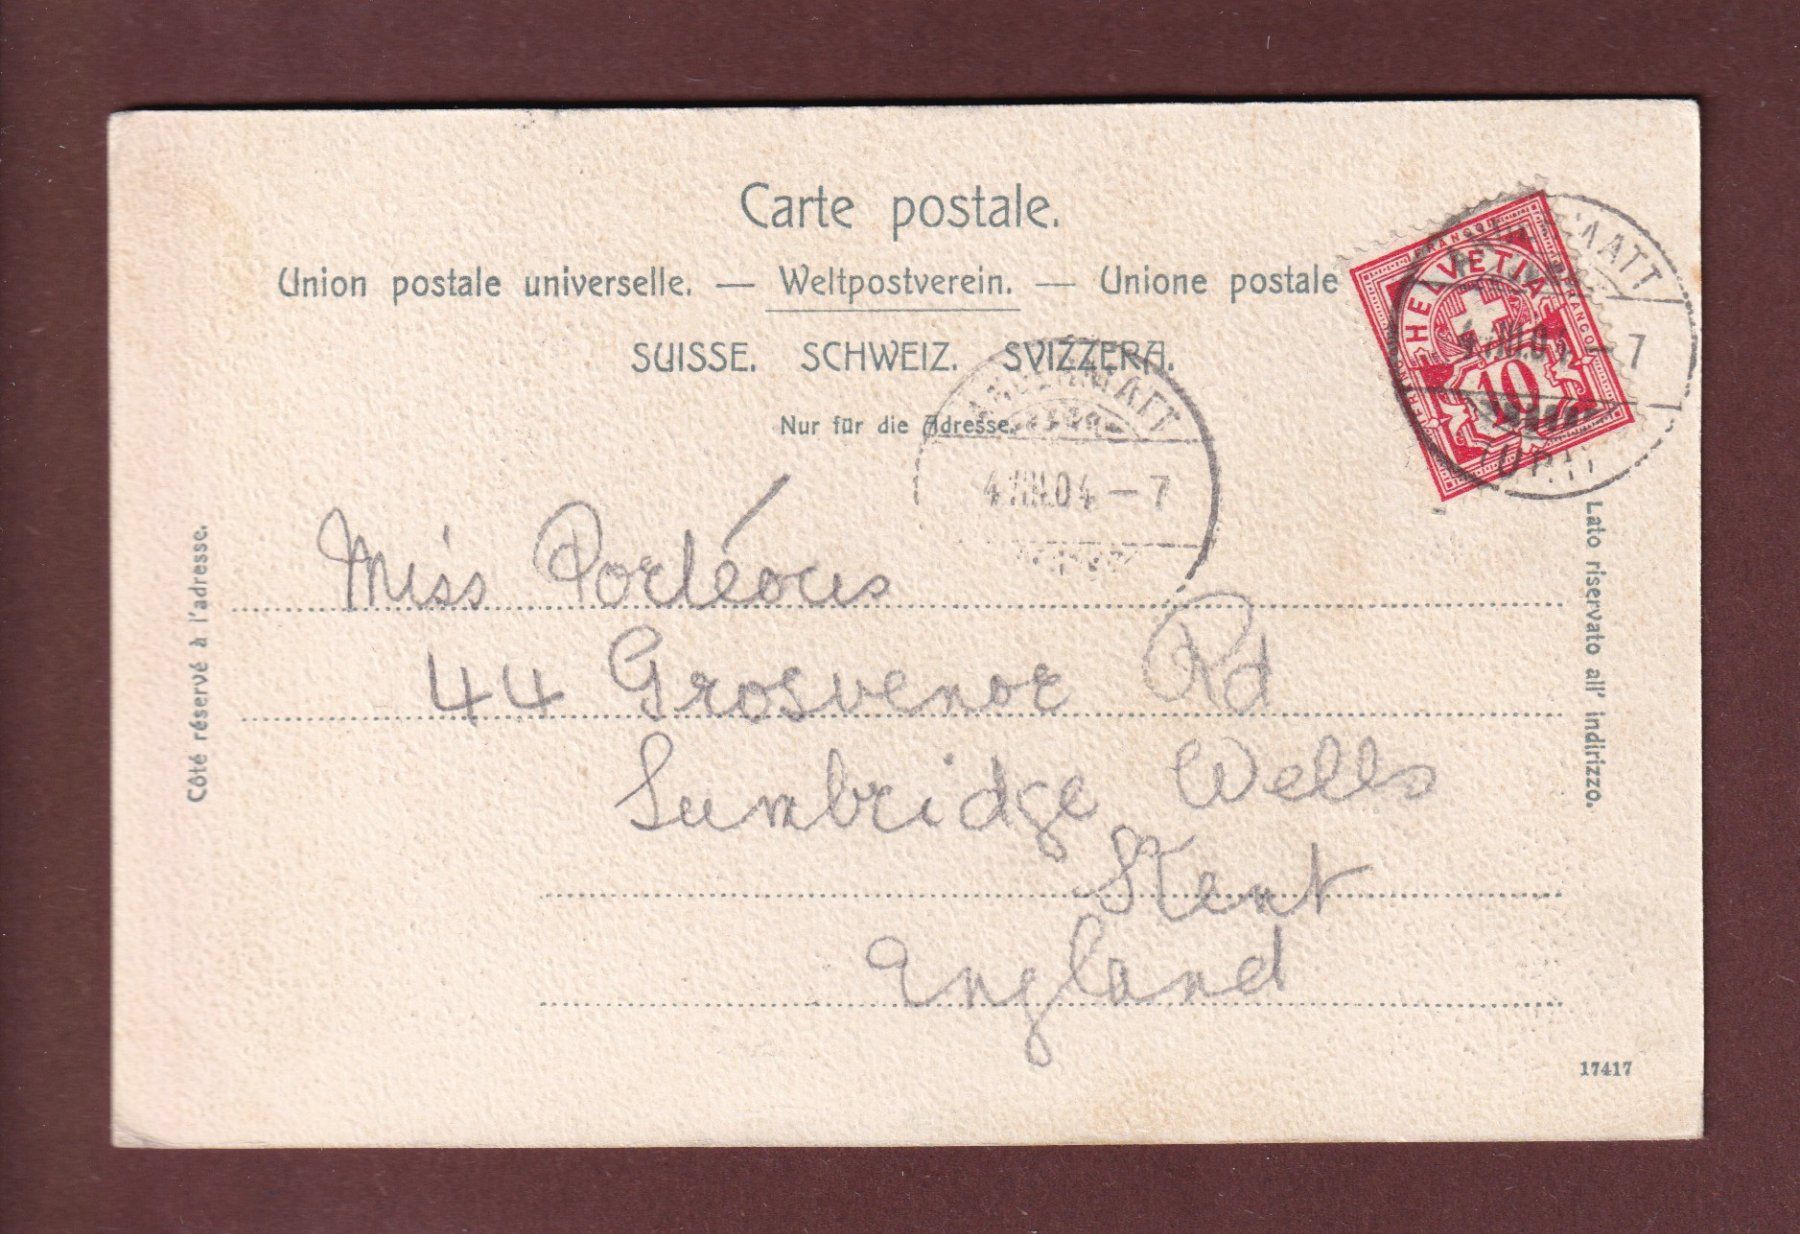 Carte postale.
Union postale universelle. — Weltpostverein. — Unione postale
SUISSE. SCHWEIZ. SVIZZERA.
Nur für die Adresse.
FRANCO
HELVETIA
FRANCO
10
MATT
4.VIII.04.–7
4.VIII.04–7
Côté réservé à l'adresse.
Lato riservato all' indirizzo.
Miss Porteous
44 Grosvenor Rd
Tunbridge Wells
Kent
England
17417